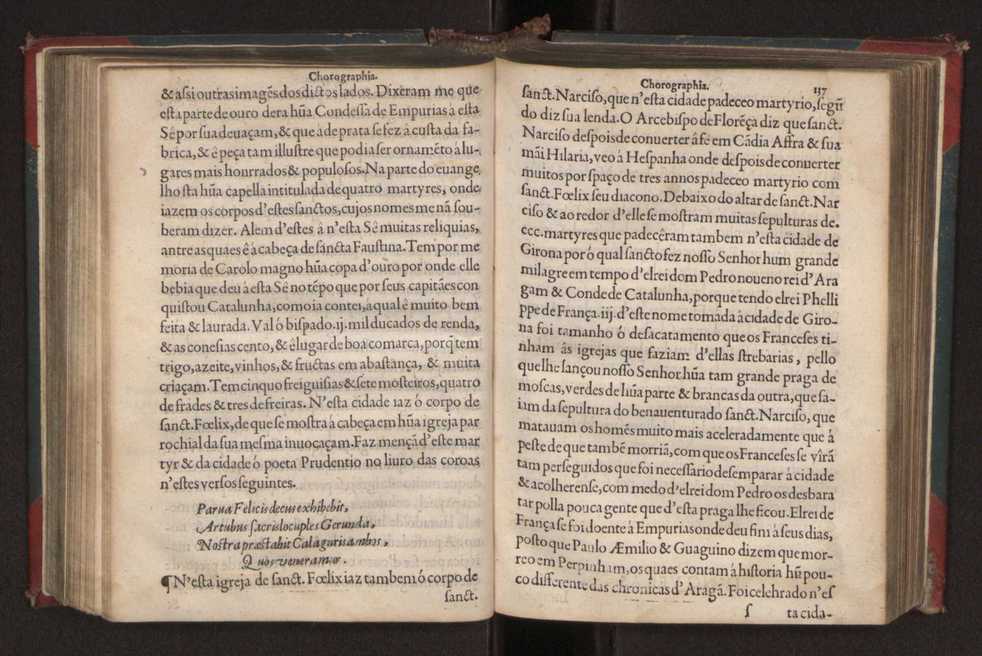 Chorographia.
& assi outras imagẽs dos dictos lados. Dixeram me que
esta parte de ouro dera hũa Condessa de Empurias à esta
Sê por sua deuaçam, & que à de prata se fez à custa da fa-
brica, & ê peça tam illustre que podia ser ornamẽto à lu-
gares mais honrrados & populosos. Na parte do euange
lho sta hũa capella intitulada de quatro martyres, onde
iazem os corpos d'estes sanctos, cujos nomes me nã sou-
beram dizer. Alem d'estes â n'esta Sê muitas reliquias,
antre as quaes ê à cabeça de sancta Faustina. Tem por me
moria de Carolo magno hũa copa d'ouro por onde elle
bebia que deu à esta Sê no tẽpo que por seus capitães con
quistou Catalunha, como ia contei, a qual ê muito bem
feita & laurada. Val ó bispado .ij. mil ducados de renda,
& as conesias cento, & ê lugar de boa comarca, porq̃ tem
trigo, azeite, vinhos, & fructas em abastança, & muita
criaçam. Tem cinquo freiguisias & sete mosteiros, quatro
de frades & tres de freiras. N'esta cidade iaz ó corpo de
sanct. Fœlix, de que se mostra à cabeça em hũa igreja par
rochial da sua mesma inuocaçam. Faz mençã d'este mar
tyr & da cidade ó poeta Prudentio no liuro das coroas
n'estes versos seguintes.
Parua Felicis decus exhibebit,
Artubus sacris locuples Gerunda,
Nostra præstabit Calagurris ambos,
Quos veneramur.
¶ N'esta igreja de sanct. Fœlix iaz tambem ó corpo de
sanct.
Chorographia. 137
sanct. Narciso, que n'esta cidade padeceo martyrio, segũ
do diz sua lenda. O Arcebispo de Florẽça diz que sanct.
Narciso despois de conuerter â fe em Cãdia Affra & sua
mãi Hilaria, veo à Hespanha onde despois de conuerter
muitos por spaço de tres annos padeceo martyrio com
sanct. Fœlix seu diacono. Debaixo do altar de sanct. Nar
ciso & ao redor d'elle se mostram muitas sepulturas de.
ccc. martyres que padecêram tambem n'esta cidade de
Girona por ó qual sancto fez nosso Senhor hum grande
milagre em tempo d'elrei dom Pedro noueno rei d'Ara
gam & Conde de Catalunha, porque tendo elrei Phelli
ppe de França .iij. d'este nome tomada à cidade de Giro-
na foi tamanho ó desacatamento que os Franceses ti-
nham âs igrejas que faziam d'ellas strebarias, pello
que lhe lançou nosso Senhor hũa tam grande praga de
moscas, verdes de hũa parte & brancas da outra, que sa-
iam da sepultura do benauenturado sanct. Narciso, que
matauam os homẽs muito mais aceleradamente que à
peste de que tambẽ morriã, com que os Franceses se virã
tam perseguidos que foi necessario desemparar à cidade
& acolherense, com medo d'elrei dom Pedro os desbara
tar polla pouca gente que d'esta praga lhe ficou. Elrei de
França se foi doente à Empurias onde deu fim â seus dias,
posto que Paulo Æmilio & Guaguino dizem que mor-
reo em Perpinham, os quaes contam à historia hũ pou-
co differente das chronicas d'Aragã. Foi celebrado n'es
ſ ta cida-